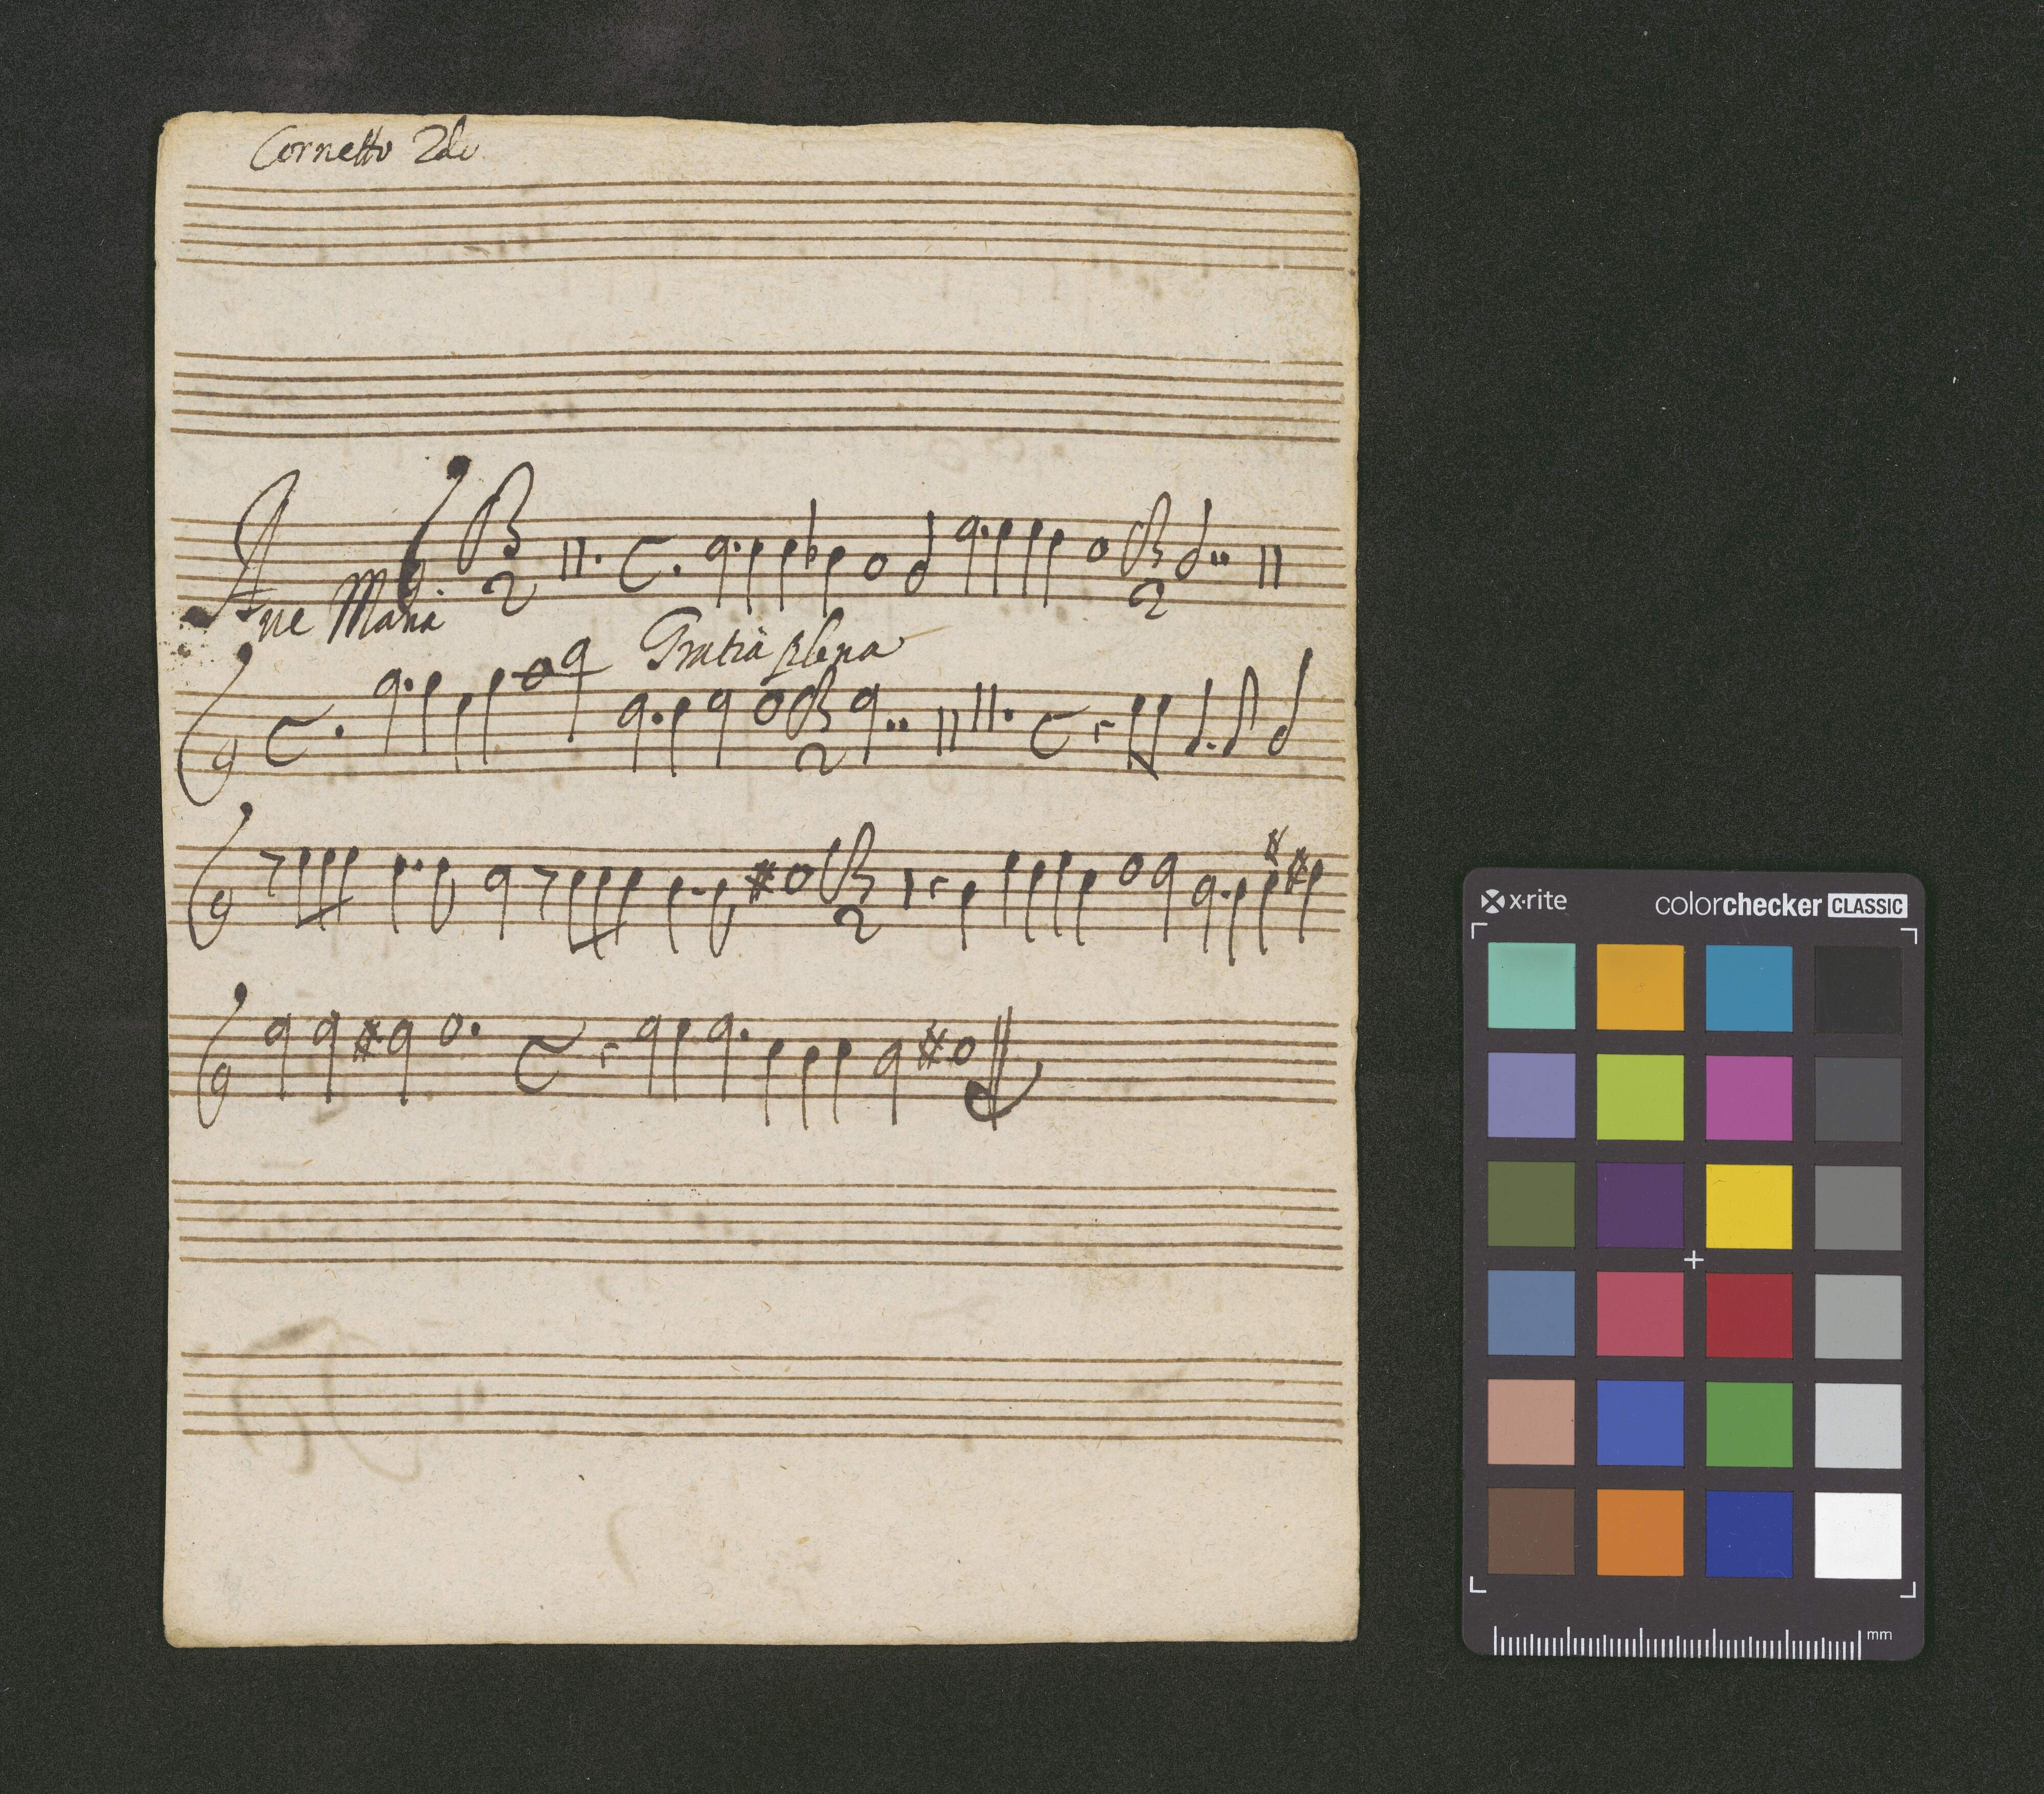 Cornetto 2do
Ave Maria
Gratia plena
x-rite
colorchecker CLASSIC
mm